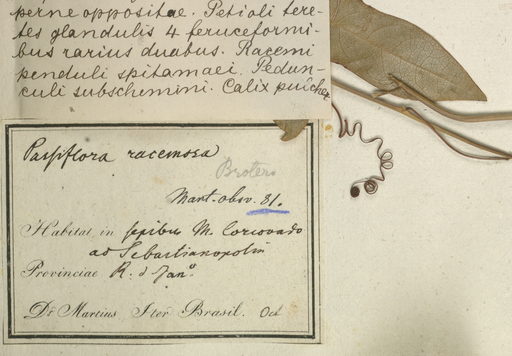 perne oppositae. Petioli tere-
tes glandulis 4 feruceformi-
bus rarius duabus. Racemi
penduli spitamaei. Pedun-
culi subschemini. Calix
Passiflora racemosa
Brotero
Mart. obsv. 31.
Habitat in sepibus M. Corcovado
ad Sebastianopolin
Provinciae R. d Jano.
Dr Martius Iter Brasil. Oct